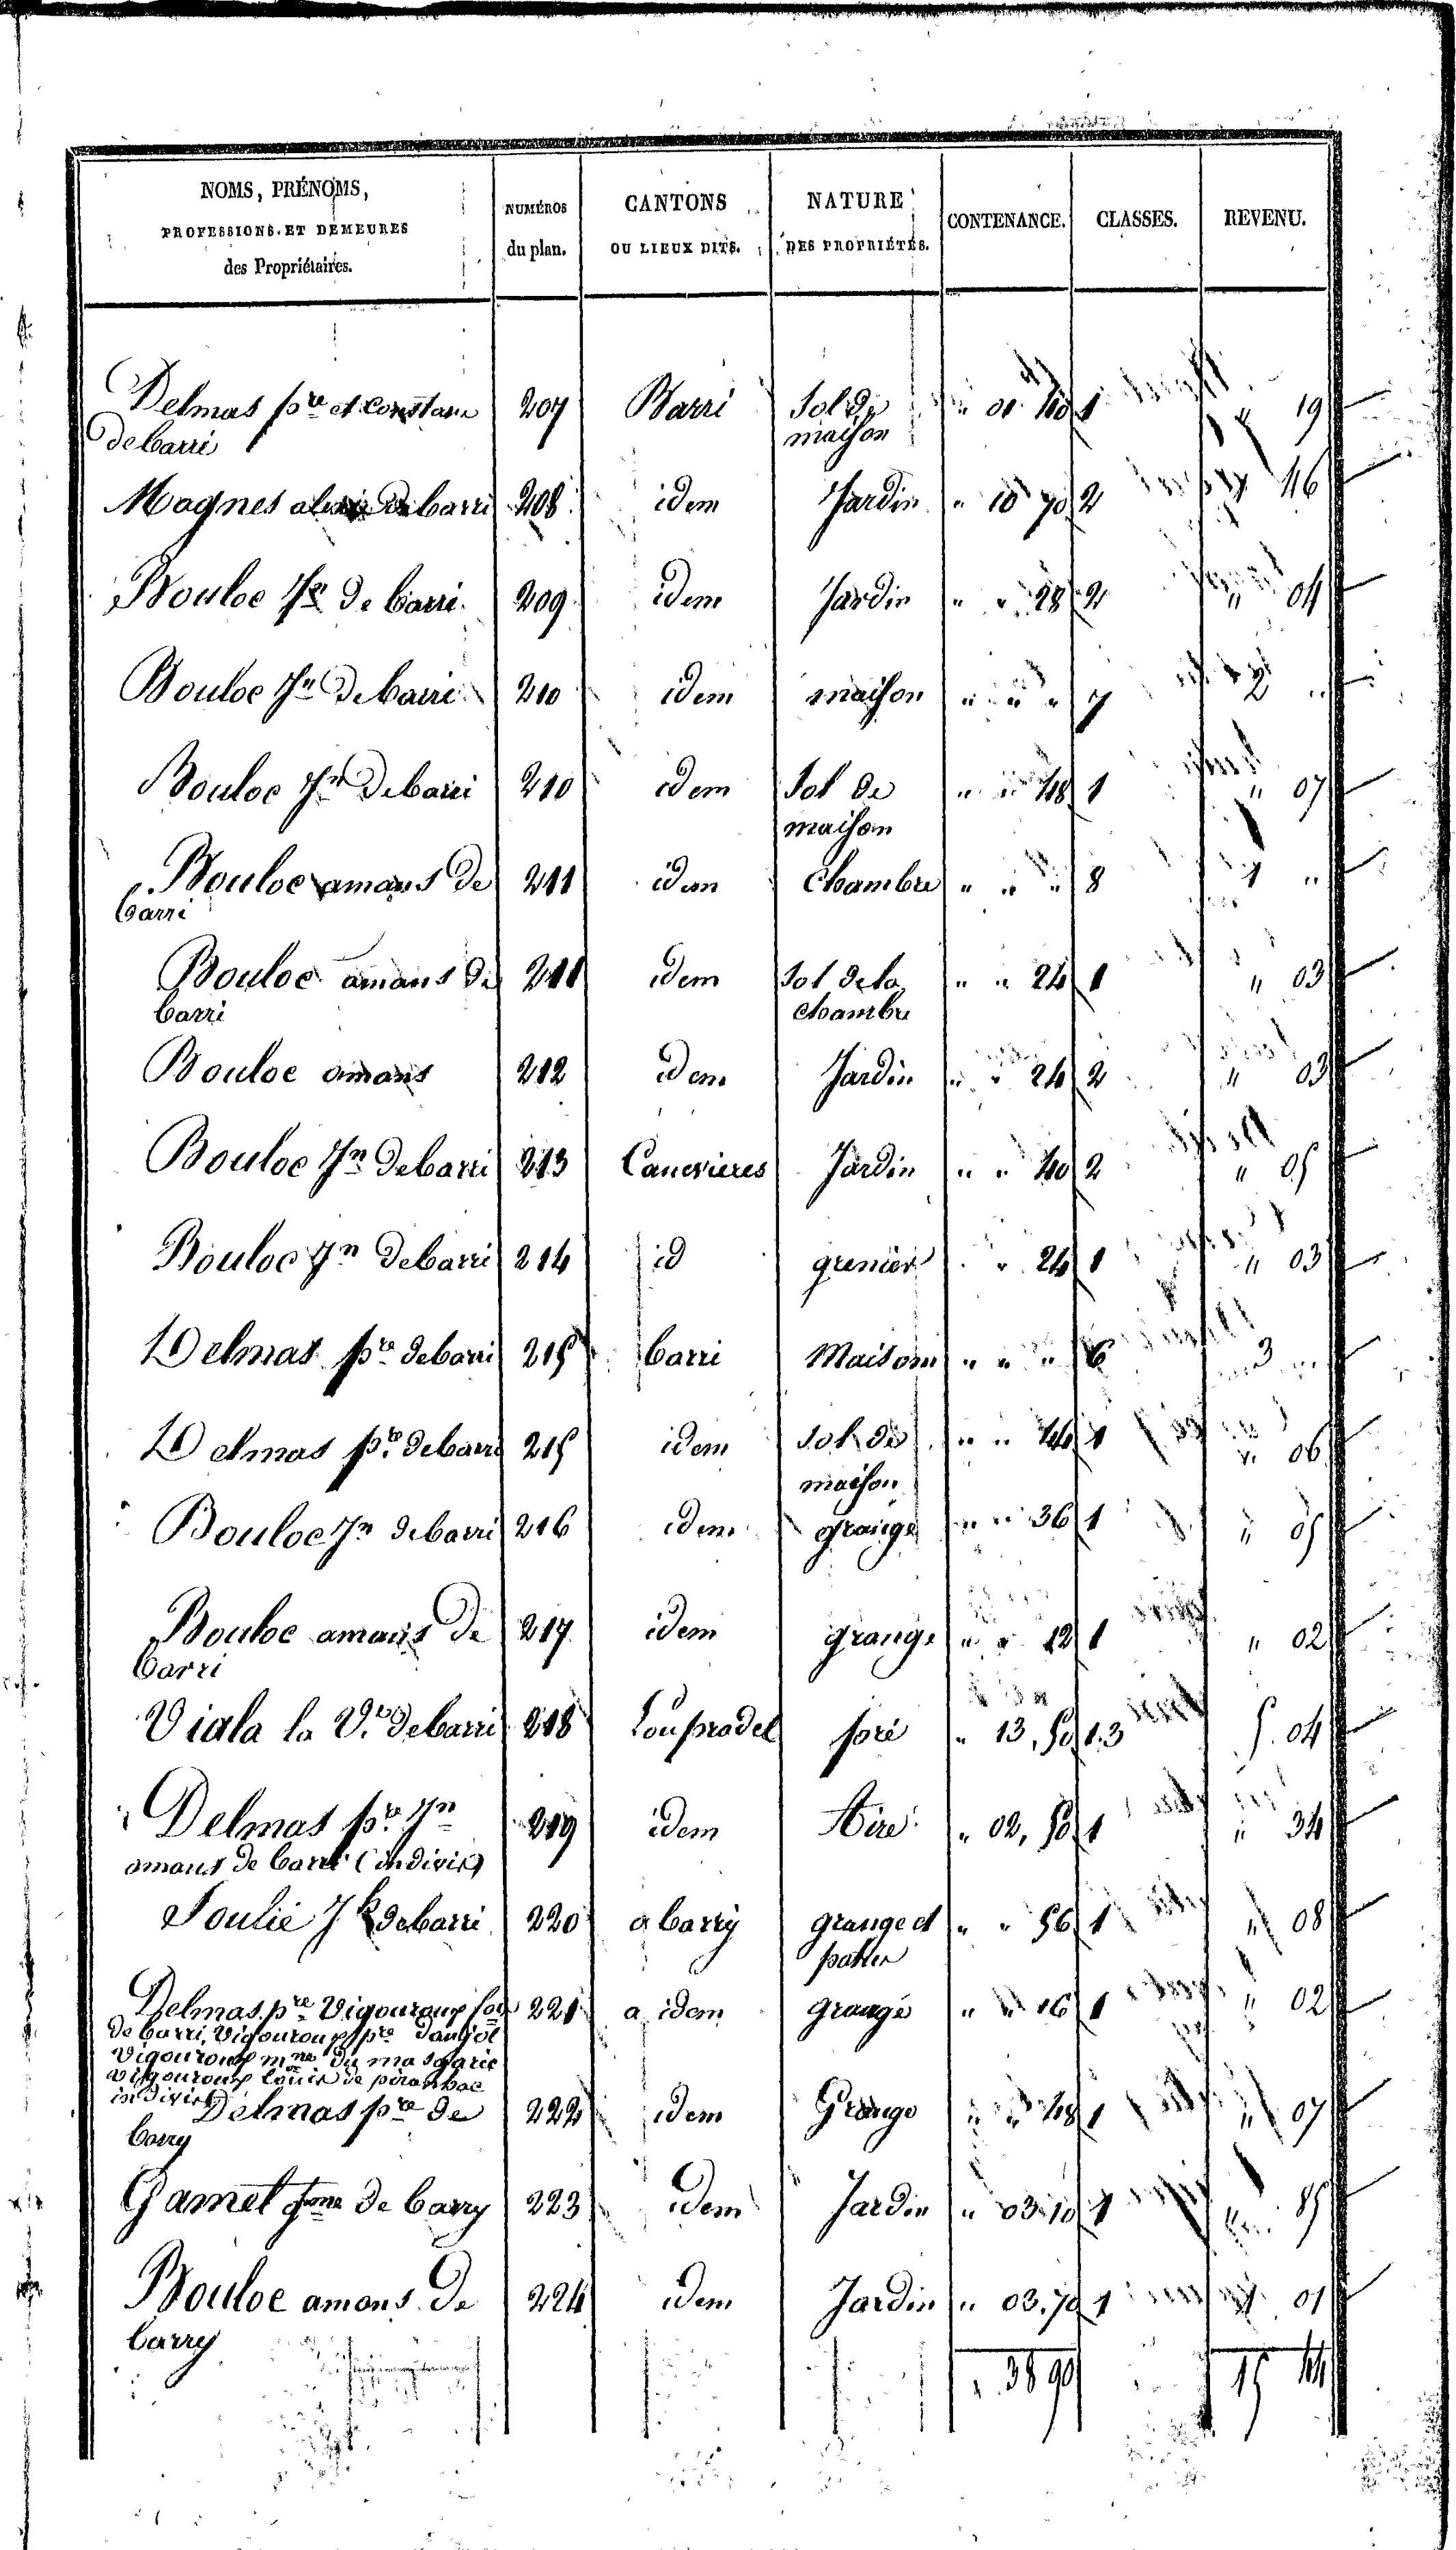 NOMS, PRÉNOMS, PROFESSIONS ET DEMEURES des Propriétaires. | NUMÉROS du plan. | CANTONS OU LIEUX DITS. | NATURE DES PROPRIÉTÉS. | CONTENANCE. | CLASSES. | REVENU.
Delmas pre et Constans 207 Barri Sol de " 01 40 1 " 19
de barri maison
Magnes de barri 208 idem Jardin " 10 70 2 46
Bouloc Jn de barri 209 idem Jardin " " 28 2 " 04
Bouloc Jn de barri 210 idem maison " " " 7 2 "
Bouloc Jn de barri 210 idem Sol de " " 48 1 " 07
maison
Bouloc amans de 211 idem Chambre " " " 8 1 "
barri
Bouloc amans de 211 idem Sol de la " " 24 1 " 03
barri chambre
Bouloc amans 212 idem Jardin " " 24 2 " 03
Bouloc Jn de barri 213 Canevieres Jardin " " 40 2 " 05
Bouloc Jn de barri 214 id grenier " 24 1 " 03
Delmas pre de barri 215 barri Maison " " " 6 3 "
Delmas pre de barri 215 idem Sol de " " 44 1 " 06
maison
Bouloc Jn de barri 216 idem grange " " 36 1 " 05
Bouloc amans de 217 idem grange " " 12 1 " 02
barri
Viala la Ve de barri 218 Lou pradel pré " 13, 50 1.3 5. 04
Delmas pre Jn 219 idem Aire " 02, 50 1 " 34
amans de barri (indivis)
Soulié de barri 220 a barry grange et " " 56 1 " 08
patus
Delmas pre Vigouroux 221 a idem grange " " 16 1 " 02
de barri, Vigouroux pre
Vigouroux du mas
Vigouroux Louis de
indivis
Delmas pre de 222 idem Grange " " 48 1 " 07
barry
Gamel de barry 223 idem Jardin " 03. 10 1 85
Bouloc amans de 224 idem Jardin " 03. 70 1 01
barry
" 38 90 15 44